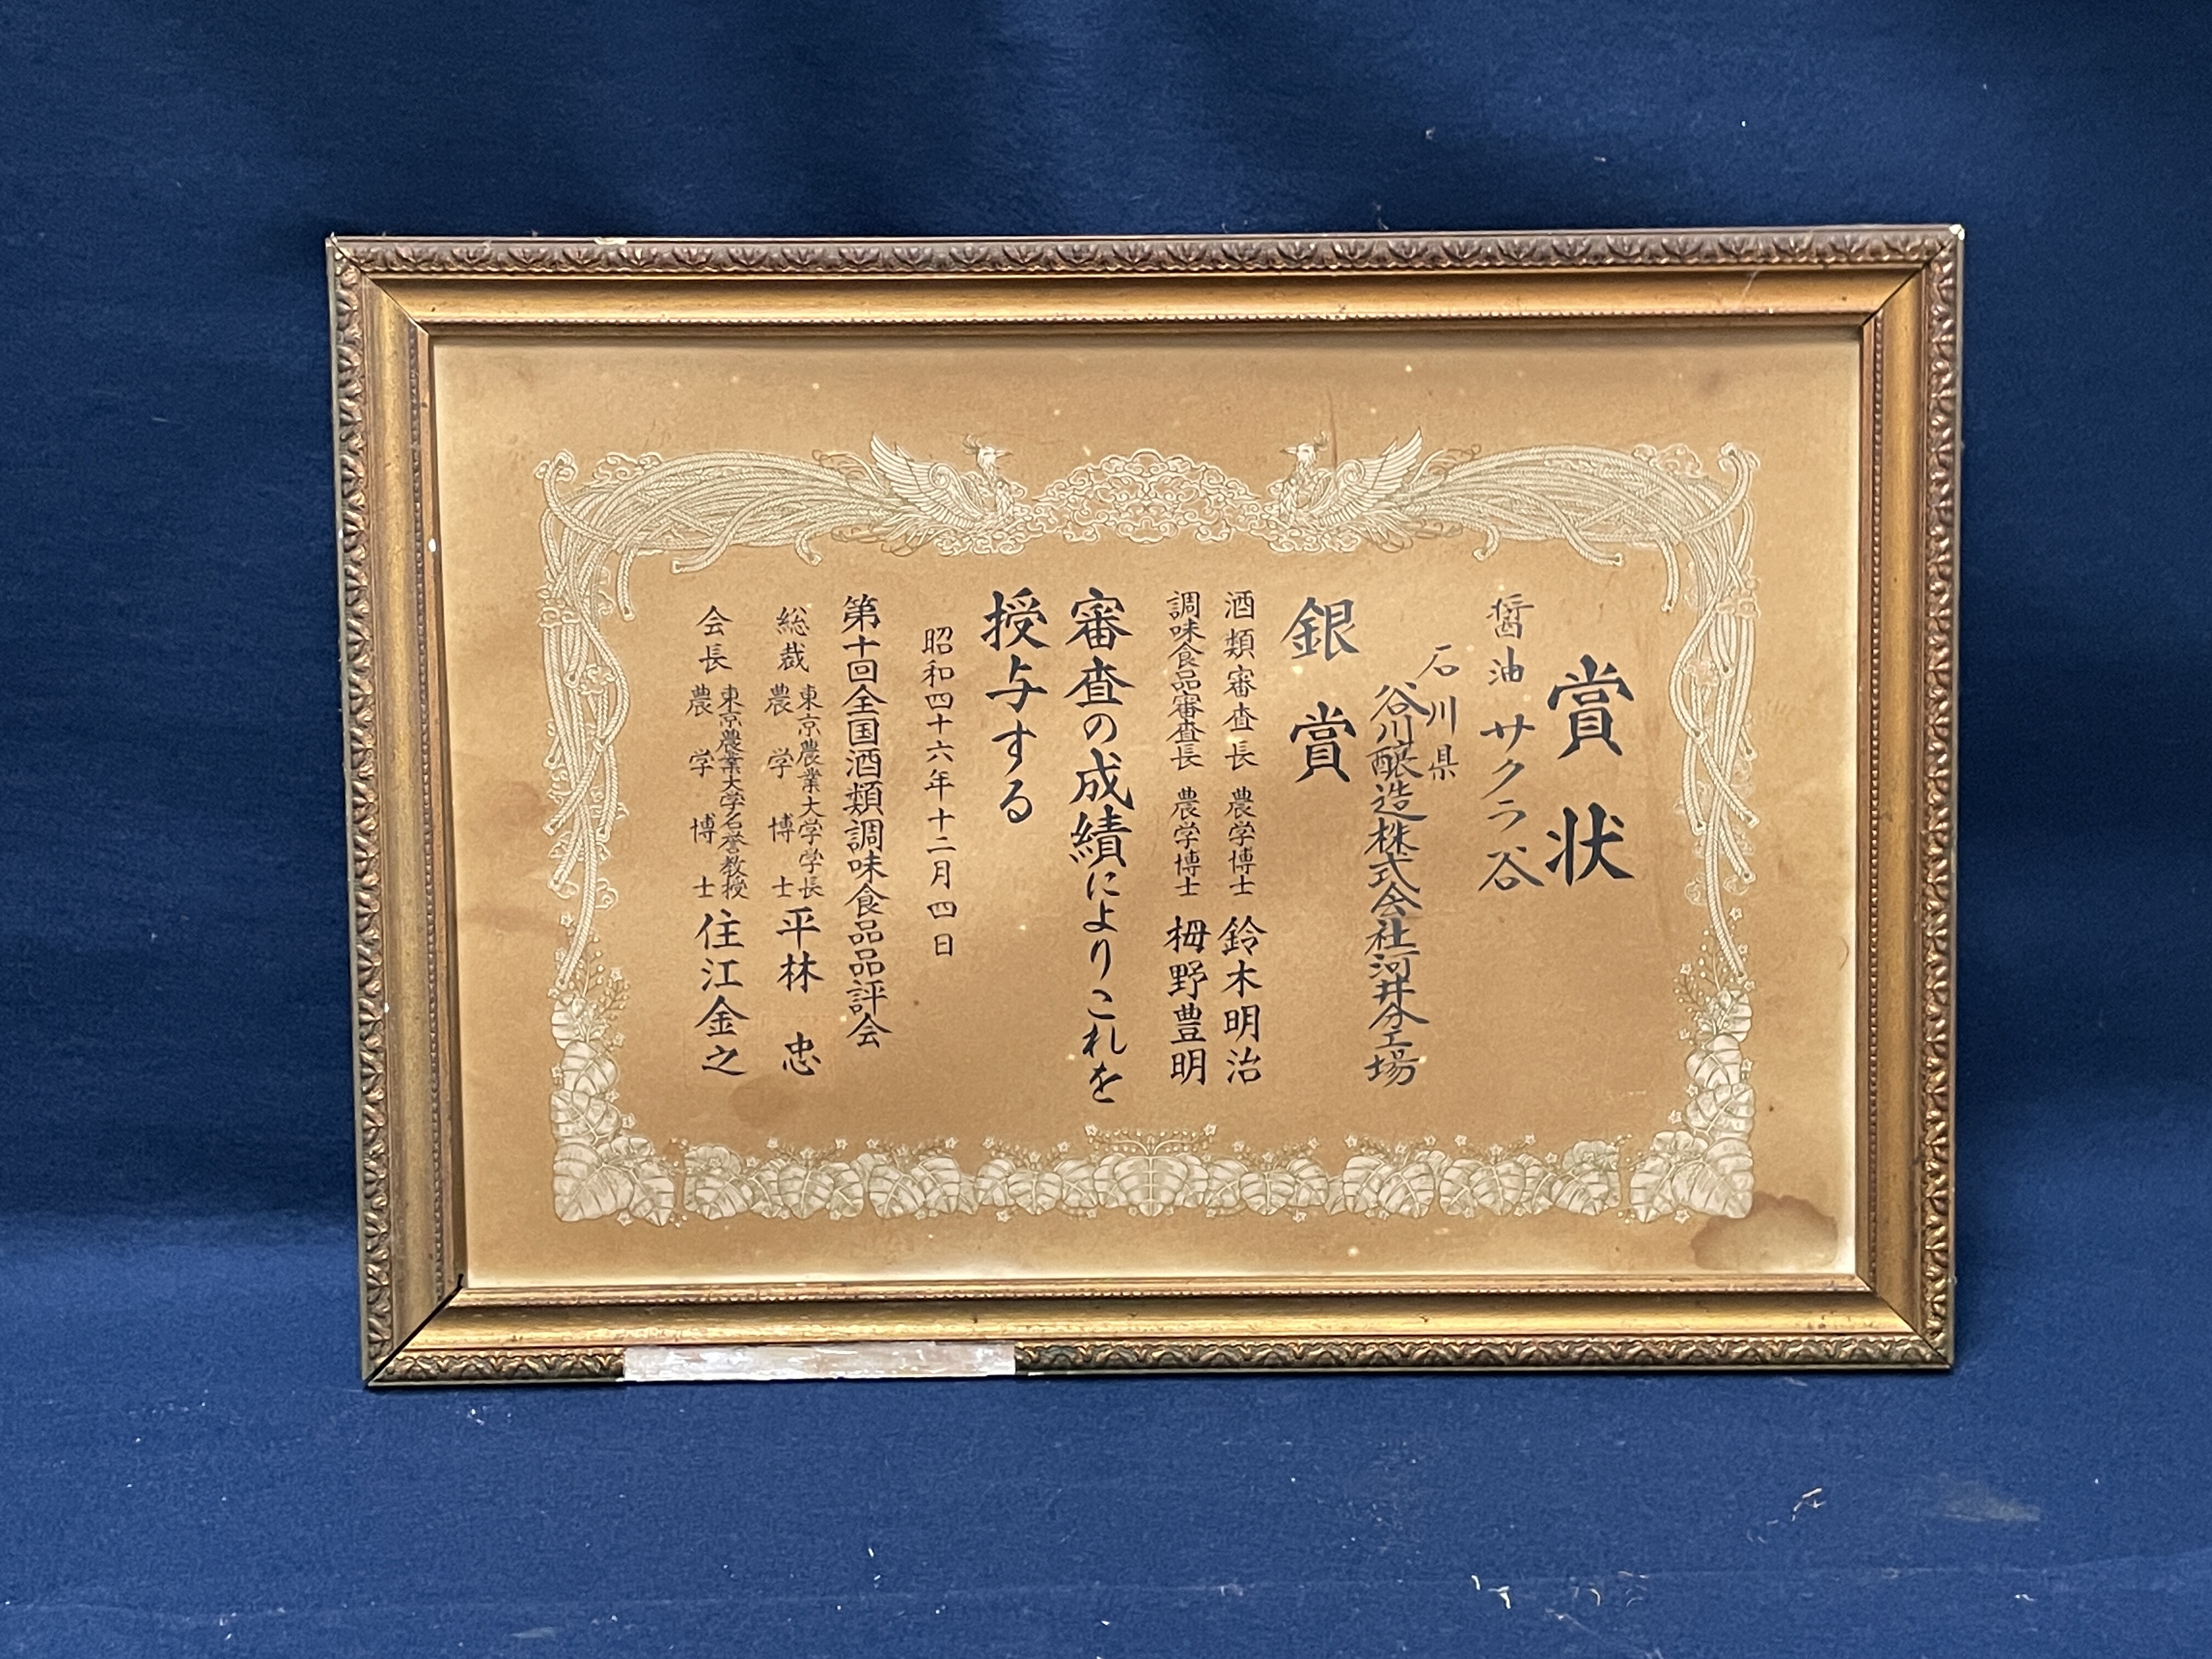 賞状
醤油 サクラ谷
石川県
谷川醸造株式会社河井分工場
銀賞
酒類審査長 農学博士 鈴木明治
調味食品審査長 農学博士 栂野豊明
審査の成績によりこれを
授与する
昭和四十六年十二月四日
第十回全国酒類調味食品品評会
総裁 東京農業大学学長 農学博士 平林忠
会長 東京農業大学名誉教授 農学博士 住江金之